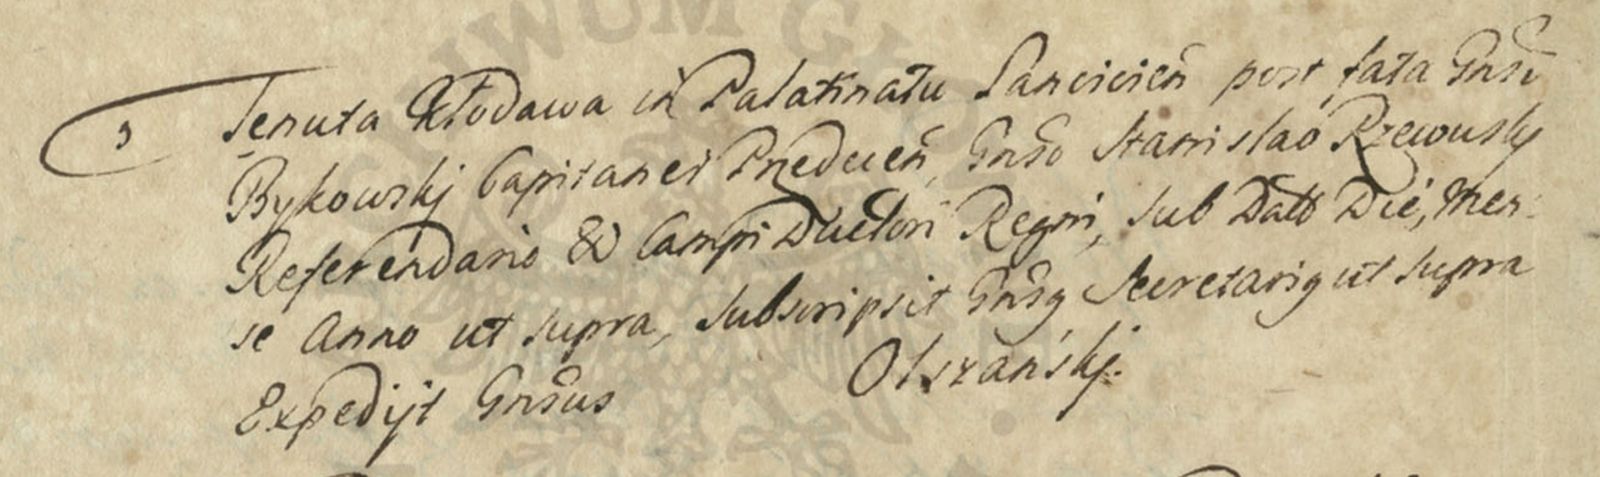 Tenuta Kłodawa in Palatinatu Lancicień post fata Gnsi
Bykowskj Capitanei Prředeceń, Gnso Stanislao Rzewuskj
Referendario & Campi Ductori Regni, sub Datt Die, Men:
se Anno ut supra, subscripsit Gnsq Secretariq ut supra
Expedijt Gnsus Olszańskj.